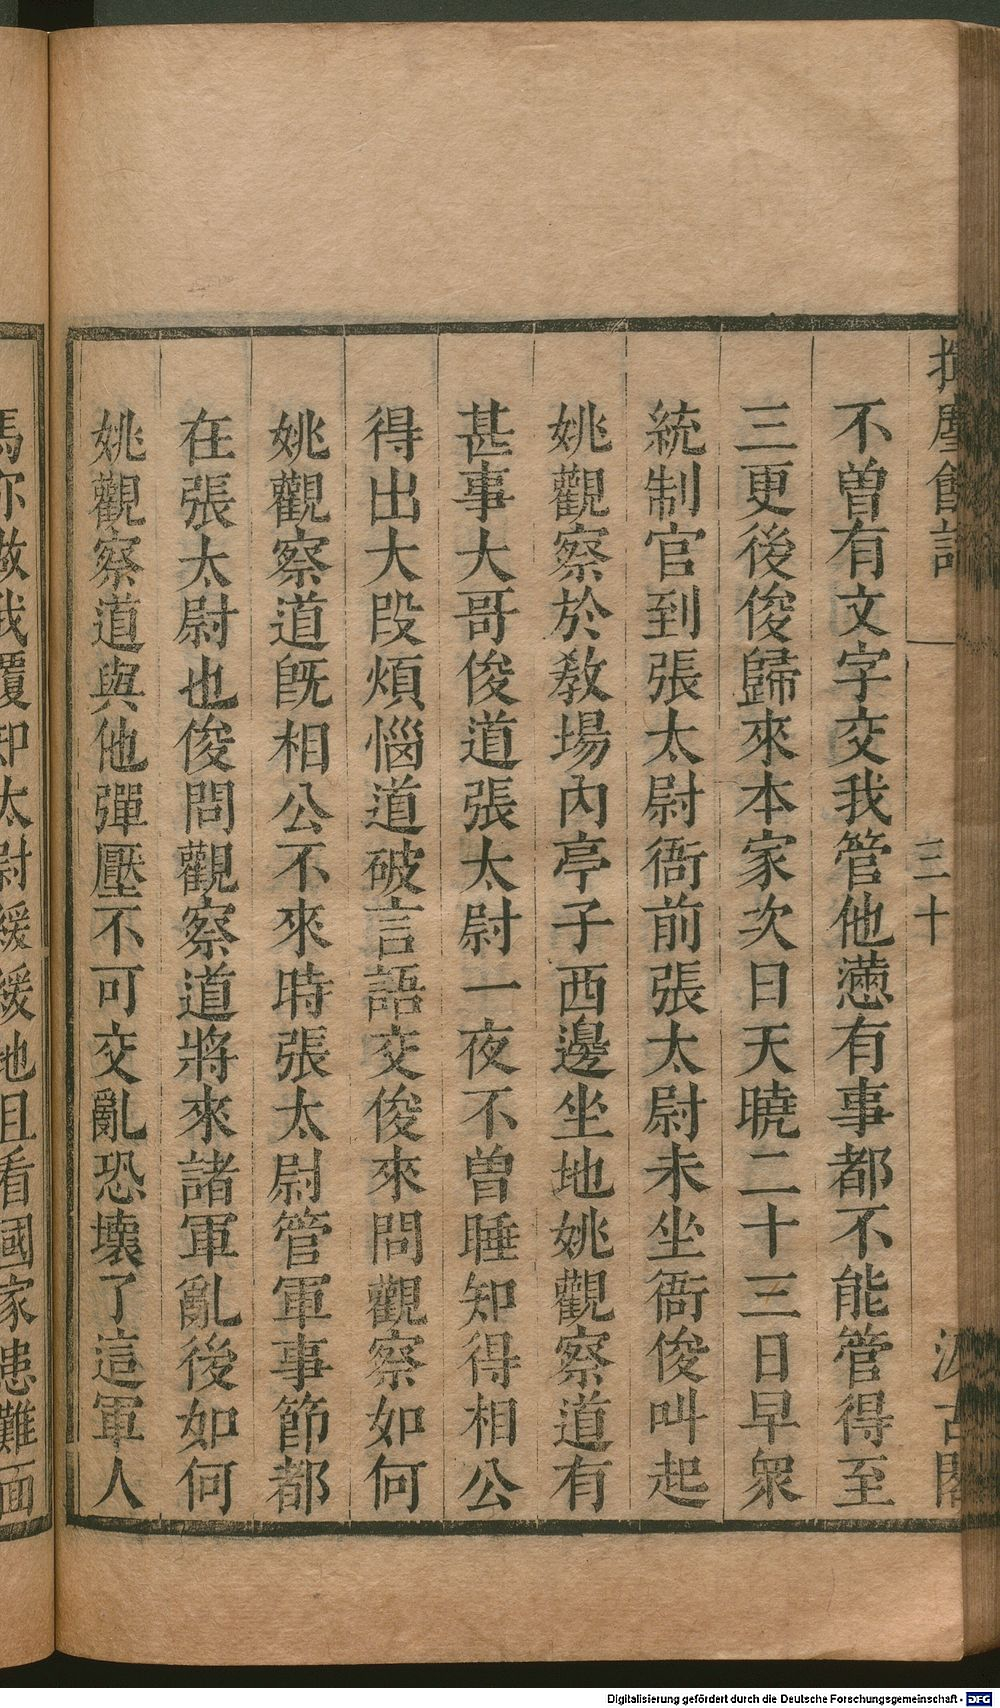 揮麈餘話
三十
汲古閣
不曽有文字交我管他懣有事都不能管得至
三更後俊歸來本家次日天曉二十三日早衆
統制官到張太尉衙前張太尉未坐衙俊叫起
姚觀察於敎場內亭子西邊坐地姚觀察道有
甚事大哥俊道張太尉一夜不曽睡知得相公
得出大段煩惱道破言語交俊來問觀察如何
姚觀察道旣相公不來時張太尉管軍事節都
在張太尉也俊問觀察道將來諸軍亂後如何
姚觀察道與他彈壓不可交亂恐壞了這軍人
馬你做我覆知太尉緩緩地且看國家患難面
Digitalisierung gefördert durch die Deutsche Forschungsgemeinschaft - DFG